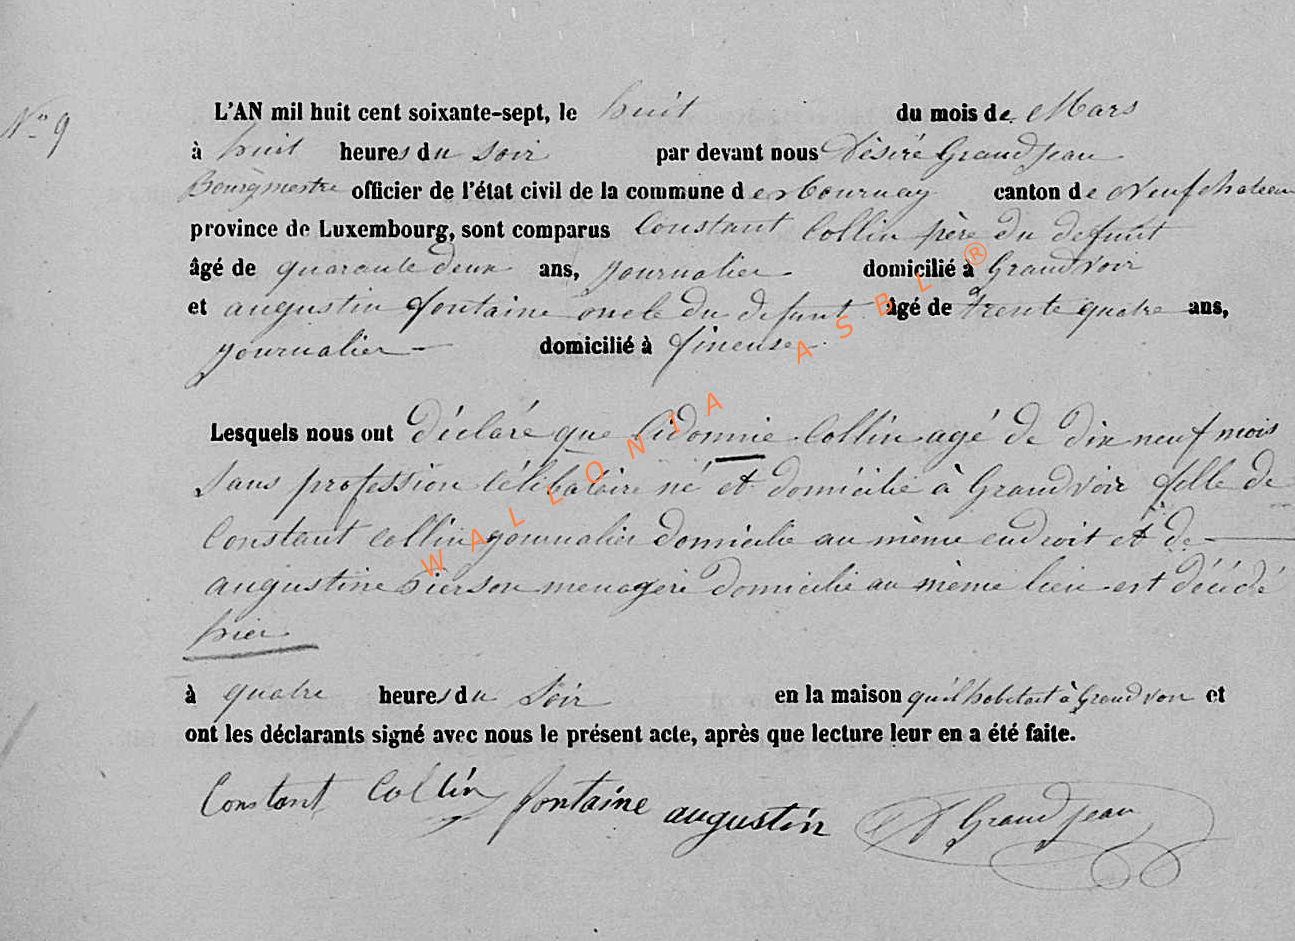 N° 9
L'AN mil huit cent soixante-sept, le huit du mois de Mars
à huit heures du soir par devant nous Désiré Grandjean
Bourgmestre officier de l'état civil de la commune de Tournay canton de Neufchateau
province de Luxembourg, sont comparus Constant Collin père du defunt
âgé de quarante deux ans, journalier domicilié à Grandvoir
et augustin fontaine oncle du defunt âgé de trente quatre ans,
journalier domicilié à fineuse
Lesquels nous ont déclaré que Sidonnie Collin agé de dix neuf mois
sans profession célibataire né et domicilié à Grandvoir fille de
Constant Collin journalier domicilié au même endroit et de
augustine pierson menagère domicilié au même lieu est décédé
hier
à quatre heures du Soir en la maison qu'il habitait à Grandvoir et
ont les déclarants signé avec nous le présent acte, après que lecture leur en a été faite.
Constant Collin fontaine augustin D Grandjean
WALLONIA ASBL ®